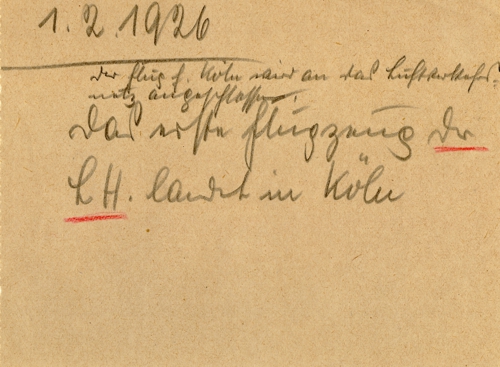 1.2.1926
der Flugh. Köln wird an das Luftverkehrs-
netz angeschlossen.
Das erste Flugzeug der
LH. landet in Köln